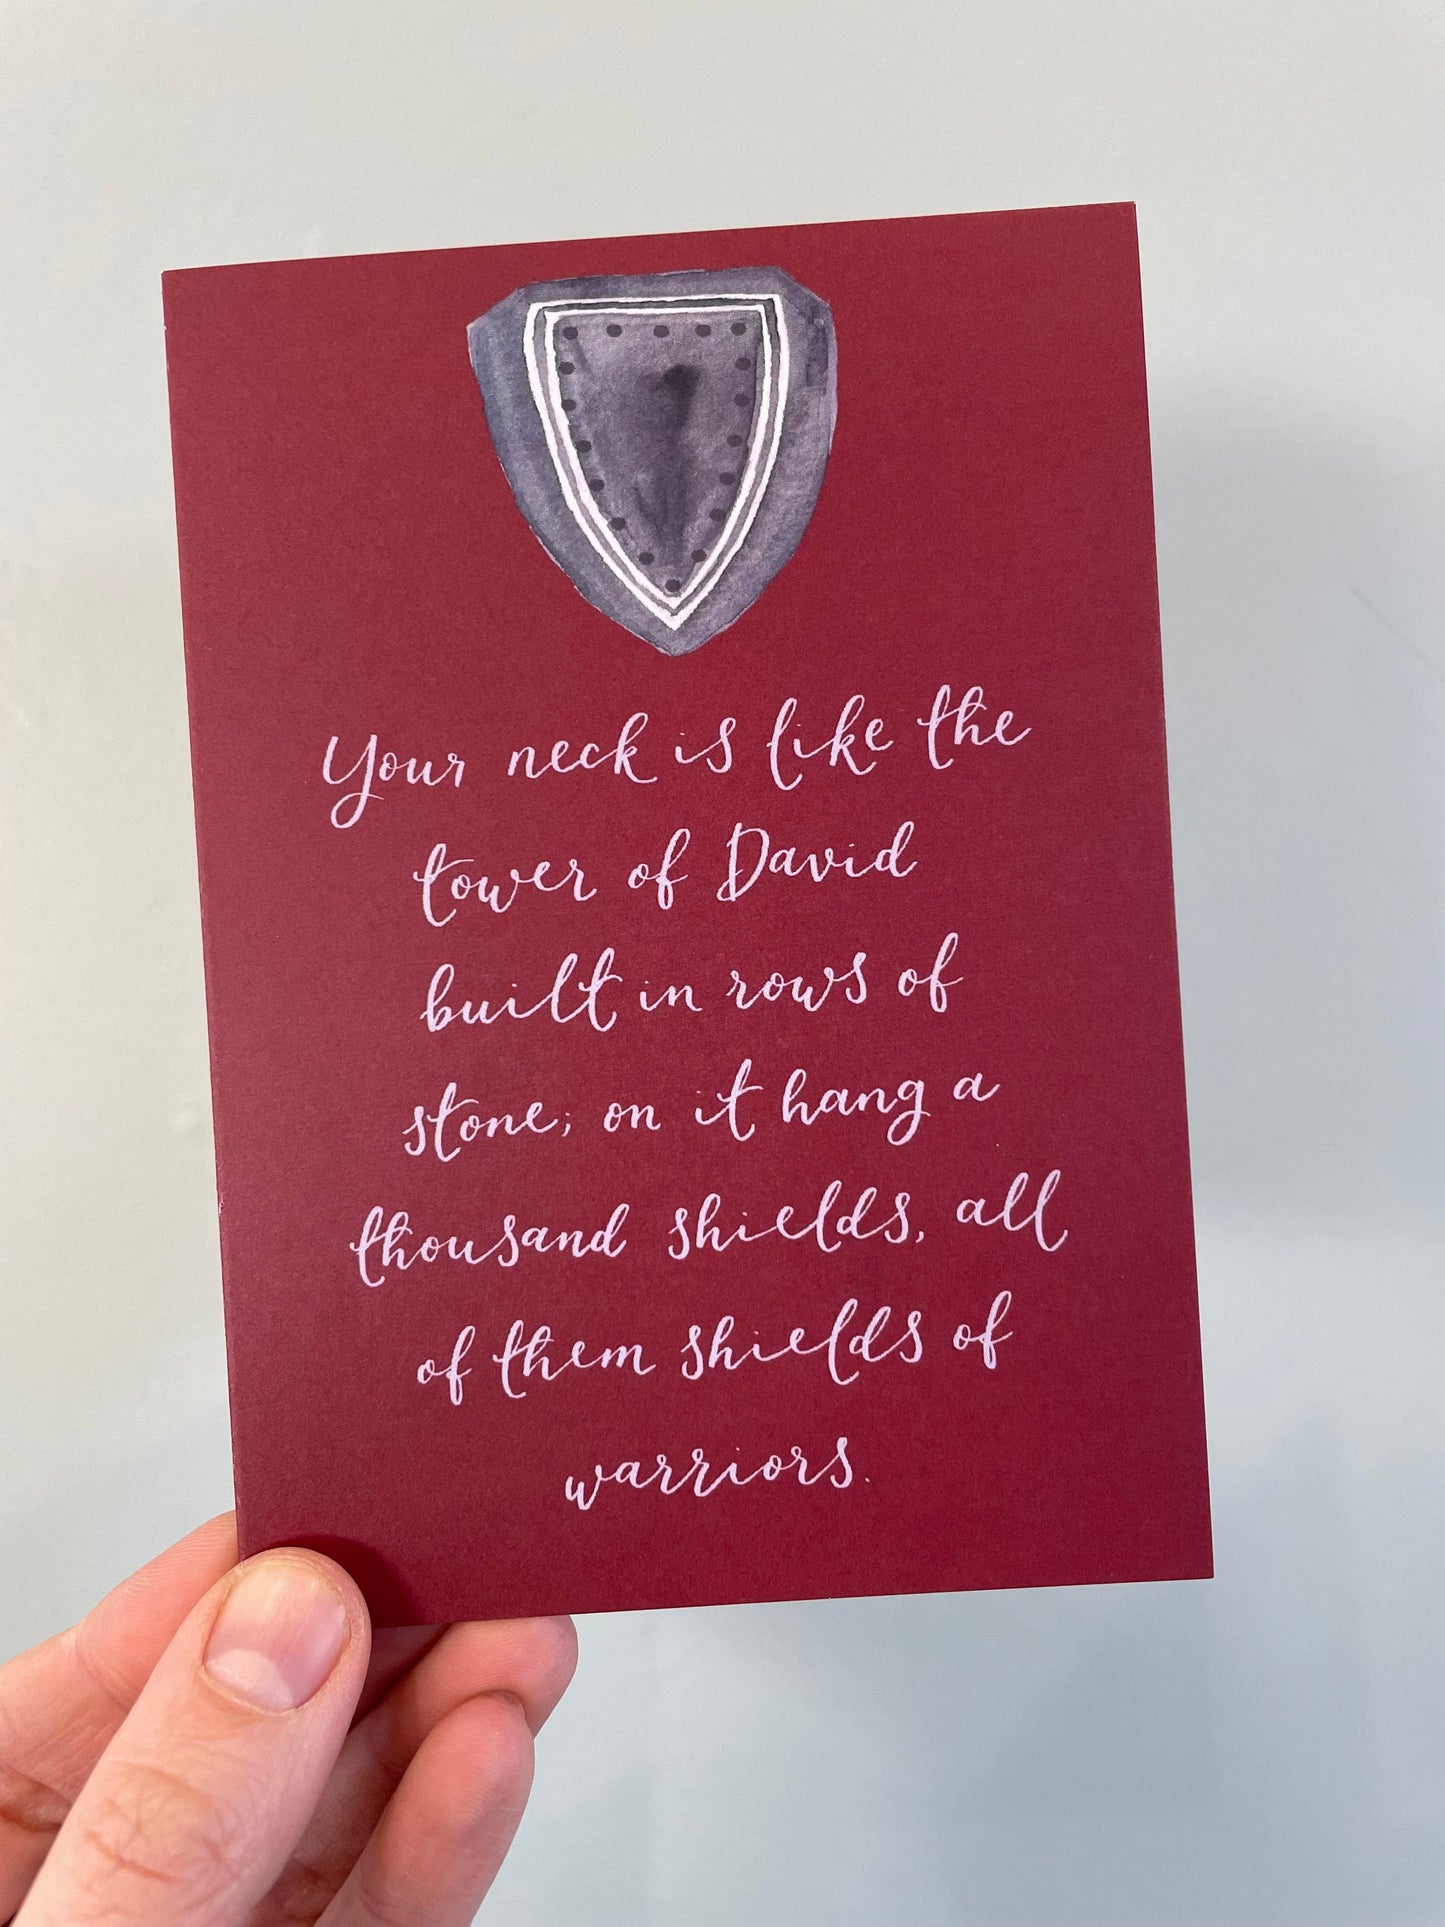 Your neck is like the
tower of David
built in rows of
stone; on it hang a
thousand shields, all
of them shields of
warriors.